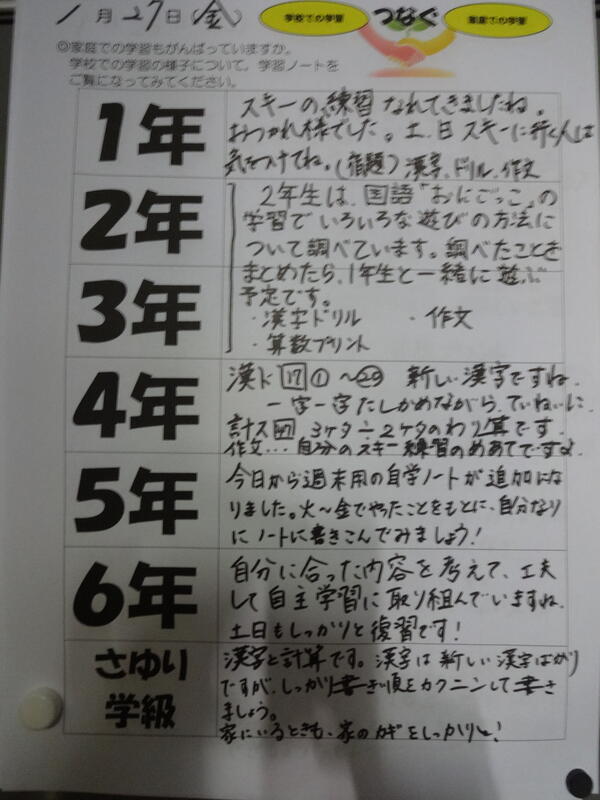 1月27日(金)
学校での学習 つなぐ 家庭での学習
◎家庭での学習もがんばっていますか。
学校での学習の様子について、学習ノートを
ご覧になってみてください。
1年
スキーの練習なれてきましたね。
おつかれ様でした。土、日スキーに行く人は
気をつけてね。(宿題)漢字、ドリル、作文
2年
3年
2年生は、国語「おにごっこ」の
学習でいろいろな遊びの方法に
ついて調べています。調べたことを
まとめたら、1年生と一緒に遊ぶ
予定です。
・漢字ドリル ・作文
・算数プリント
4年
漢ド17①~⑳ 新しい漢字ですね。
一字一字たしかめながら、ていねいに。
計ス 3ケタ÷2ケタのわり算です。
作文…自分のスキー練習のめあてですよ。
5年
今日から週末用の自学ノートが追加にな
りました。火~金でやったことをもとに、自分なり
にノートに書きこんでみましょう!
6年
自分に合った内容を考えて、工夫
して自主学習に取り組んでいますね。
土日もしっかりと復習です!
さゆり
学級
漢字と計算です。漢字は新しい漢字ばかり
ですが、しっかり書き順をカクニンして書き
ましょう。
家にいるときも、家のカギをしっかりと!